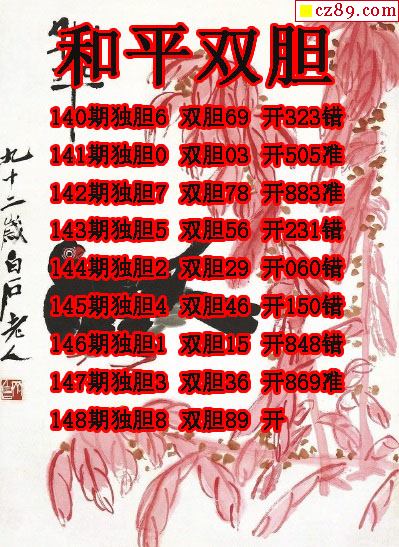 cz89.com
和平双胆
140期独胆6 双胆69 开323错
141期独胆0 双胆03 开505准
142期独胆7 双胆78 开883准
143期独胆5 双胆56 开231错
144期独胆2 双胆29 开060错
145期独胆4 双胆46 开150错
146期独胆1 双胆15 开848错
147期独胆3 双胆36 开869准
148期独胆8 双胆89 开
九十二岁白石老人